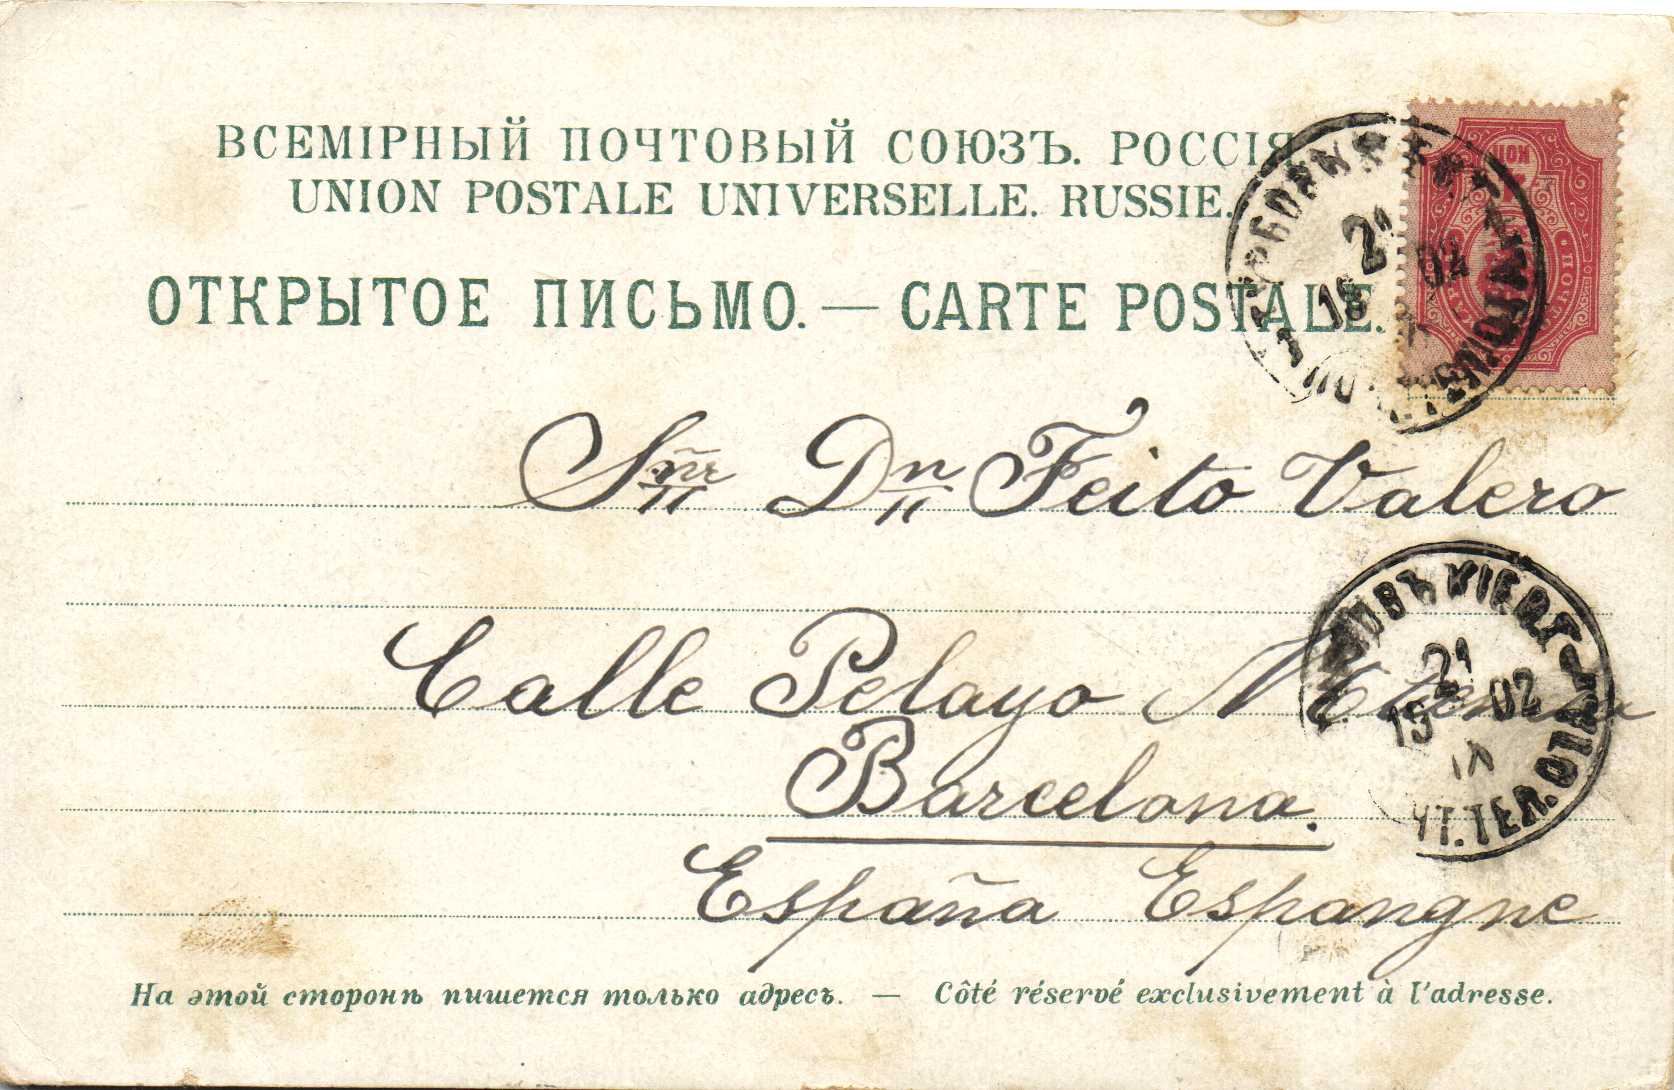 ВСЕМІРНЫЙ ПОЧТОВЫЙ СОЮЗЪ. РОССІЯ
UNION POSTALE UNIVERSELLE. RUSSIE.
ОТКРЫТОЕ ПИСЬМО. — CARTE POSTALE.
21
18 02
Sñr Dn Feito Valero
Calle Pelayo
21
15 02
IX
ПТ. ТЕЛ. ОТД.
Barcelona.
España Espangne
На этой сторонѣ пишется только адресъ. — Côté réservé exclusivement à l'adresse.